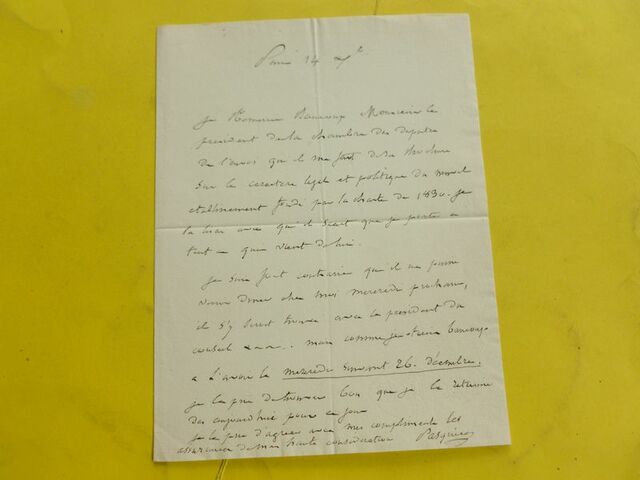 Paris 14 Xbre
Je remercie beaucoup Monsieur le
président de la chambre des députés
de l'envoi qu'il me fait de sa brochure
sur le caractère légal et politique du nouvel
établissement fondé par la charte de 1830. je
la lirai avec qu'il sait que je porte a
tout ce qui vient de lui.
Je suis fort contrarié qu'il ne puisse
venir diner chez moi mercredi prochain,
il s'y serait trouvé avec le président du
conseil mais comme je tiens beaucoup
a l'avoir le mercredi suivant 26. décembre,
je le prie de trouver bon que je le retienne
des aujourdhui pour ce jour
je le prie d'agréer avec mes compliments les
assurances de ma haute considération Pasquier